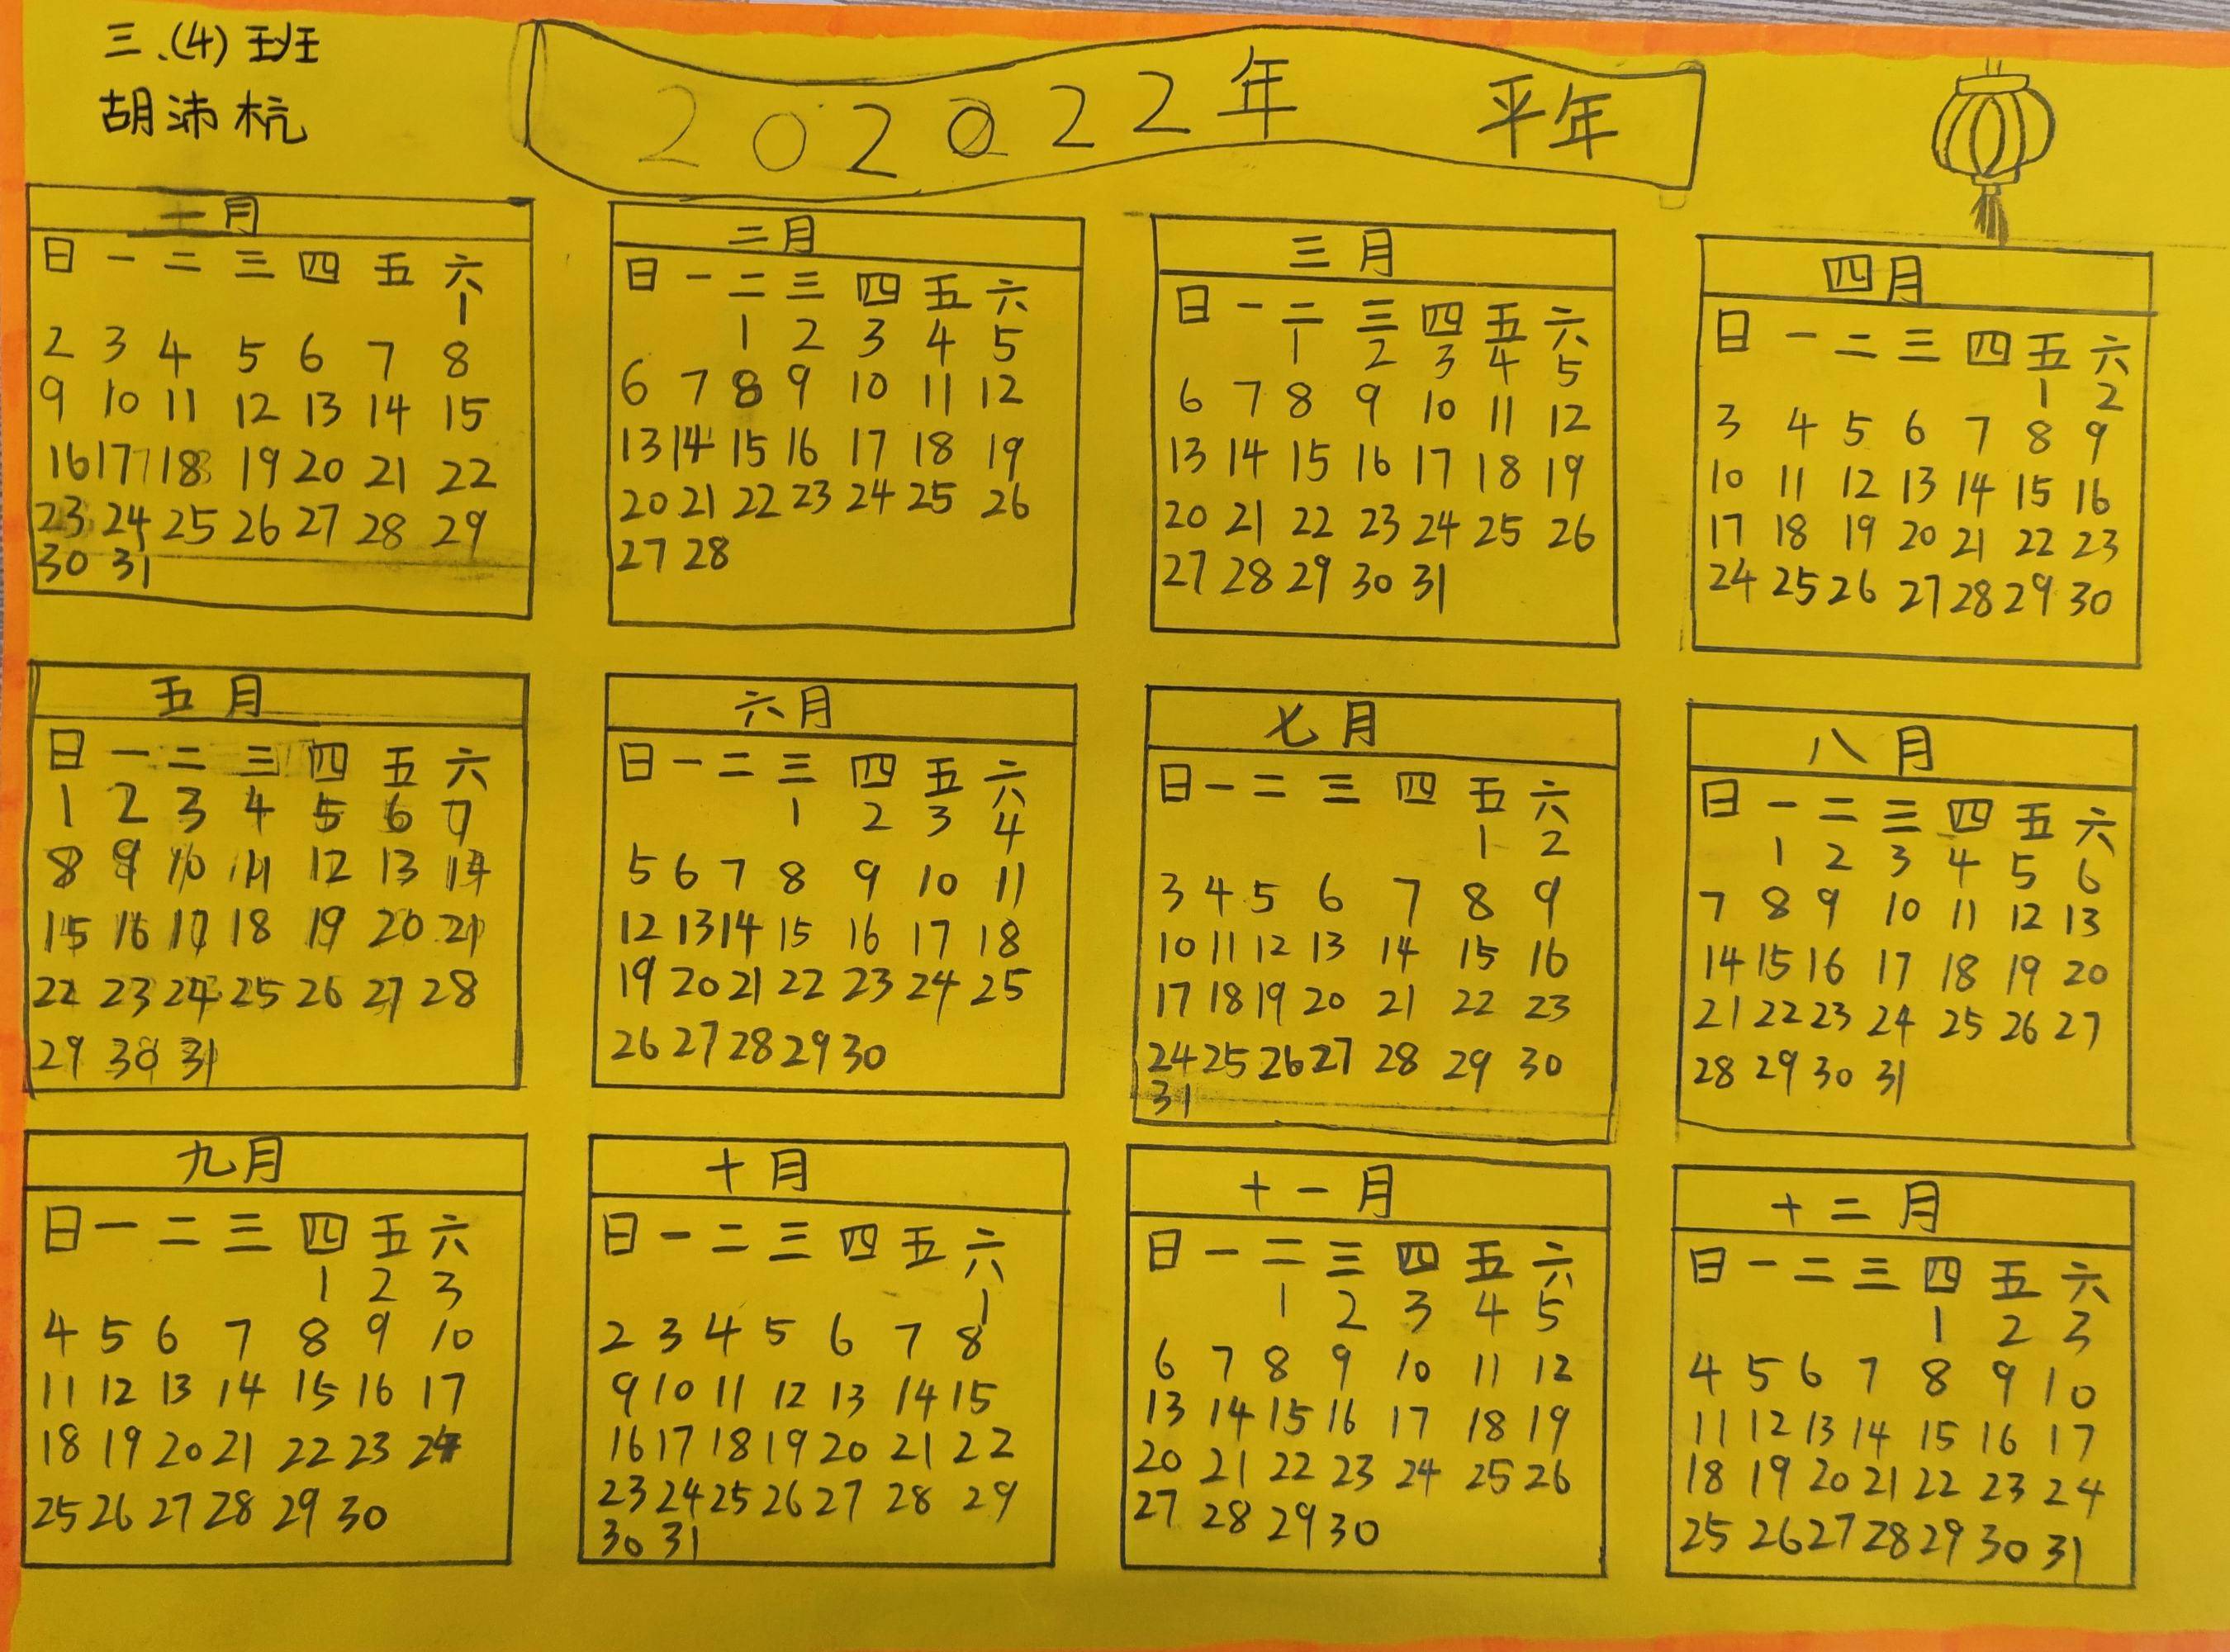 三.(4)班
胡沛杭
202022年 平年
一月
日 一 二 三 四 五 六
1
2 3 4 5 6 7 8
9 10 11 12 13 14 15
16 17 18 19 20 21 22
23 24 25 26 27 28 29
30 31
二月
日 一 二 三 四 五 六
1 2 3 4 5
6 7 8 9 10 11 12
13 14 15 16 17 18 19
20 21 22 23 24 25 26
27 28
三月
日 一 二 三 四 五 六
1 2 3 4 5
6 7 8 9 10 11 12
13 14 15 16 17 18 19
20 21 22 23 24 25 26
27 28 29 30 31
四月
日 一 二 三 四 五 六
1 2
3 4 5 6 7 8 9
10 11 12 13 14 15 16
17 18 19 20 21 22 23
24 25 26 27 28 29 30
五月
日 一 二 三 四 五 六
1 2 3 4 5 6 7
8 9 10 11 12 13 14
15 16 17 18 19 20 21
22 23 24 25 26 27 28
29 30 31
六月
日 一 二 三 四 五 六
1 2 3 4
5 6 7 8 9 10 11
12 13 14 15 16 17 18
19 20 21 22 23 24 25
26 27 28 29 30
七月
日 一 二 三 四 五 六
1 2
3 4 5 6 7 8 9
10 11 12 13 14 15 16
17 18 19 20 21 22 23
24 25 26 27 28 29 30
31
八月
日 一 二 三 四 五 六
1 2 3 4 5 6
7 8 9 10 11 12 13
14 15 16 17 18 19 20
21 22 23 24 25 26 27
28 29 30 31
九月
日 一 二 三 四 五 六
1 2 3
4 5 6 7 8 9 10
11 12 13 14 15 16 17
18 19 20 21 22 23 24
25 26 27 28 29 30
十月
日 一 二 三 四 五 六
1
2 3 4 5 6 7 8
9 10 11 12 13 14 15
16 17 18 19 20 21 22
23 24 25 26 27 28 29
30 31
十一月
日 一 二 三 四 五 六
1 2 3 4 5
6 7 8 9 10 11 12
13 14 15 16 17 18 19
20 21 22 23 24 25 26
27 28 29 30
十二月
日 一 二 三 四 五 六
1 2 3
4 5 6 7 8 9 10
11 12 13 14 15 16 17
18 19 20 21 22 23 24
25 26 27 28 29 30 31